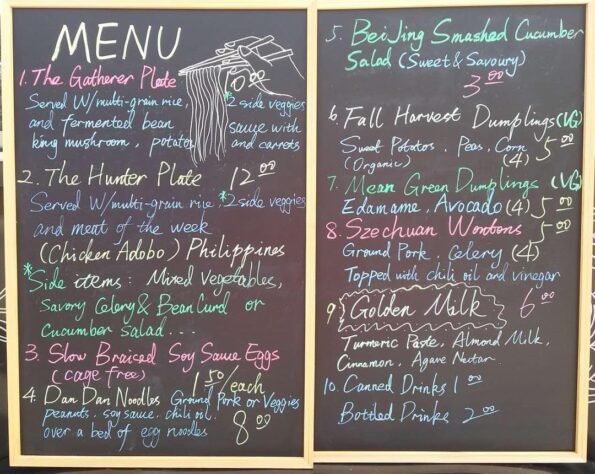 MENU
1. The Gatherer Plate 10.00
Served W/multi-grain rice, *2 side veggies
and fermented bean sauce with
king mushroom, potato and carrots
2. The Hunter Plate 12.00
Served W/multi-grain rice *2 side veggies
and meat of the week
(Chicken Adobo) Philippines
*Side items: Mixed Vegetables,
Savory Celery & Bean Curd or
Cucumber Salad...
3. Slow Braised Soy Sauce Eggs
(cage free) 1.50/each
4. Dan Dan Noodles Ground Pork or Veggies
peanuts. soy sauce. chili oil.
over a bed of egg noodles 8.00
5. BeiJing Smashed Cucumber
Salad (Sweet & Savoury)
3.00
6. Fall Harvest Dumplings (VG)
Sweet Potatos. Peas. Corn (4) 5.00
(Organic)
7. Mean Green Dumplings (VG)
Edamame. Avocado (4) 5.00
8. Szechuan Wontons 5.00
Ground Pork, Celery (4)
Topped with chili oil and vinegar
9. Golden Milk 6.00
Turmeric Paste, Almond Milk,
Cinnamon, Agave Nectar.
10. Canned Drinks 1.00
Bottled Drinks 2.00